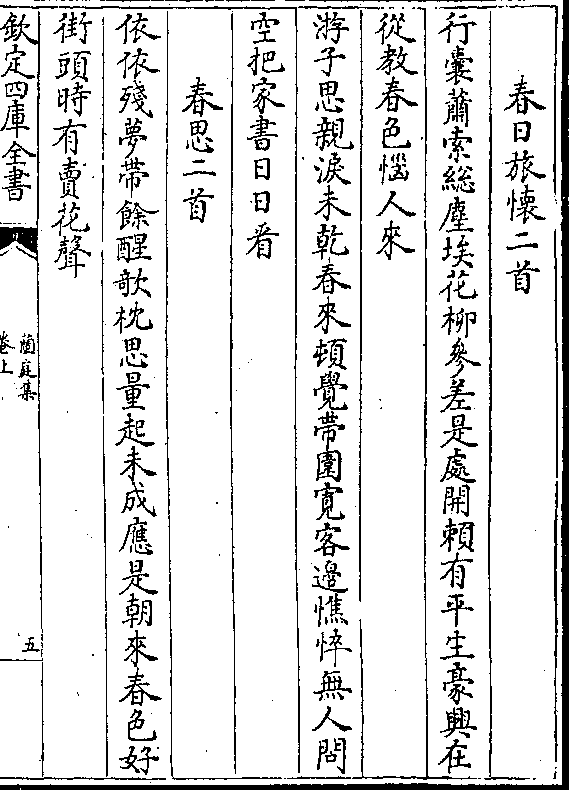 春日旅懷二首
行囊蕭索總塵埃花柳參差是處開賴有平生豪興在
從教春色惱人來
游子思親淚未乾春來頓覺帶圍寬客邉憔悴無人問
空把家書日日看
春思二首
依依殘夢帶餘酲欹枕思量起未成應是朝來春色好
街頭時有賣花聲
欽定四庫全書
蘭庭集
卷上
五